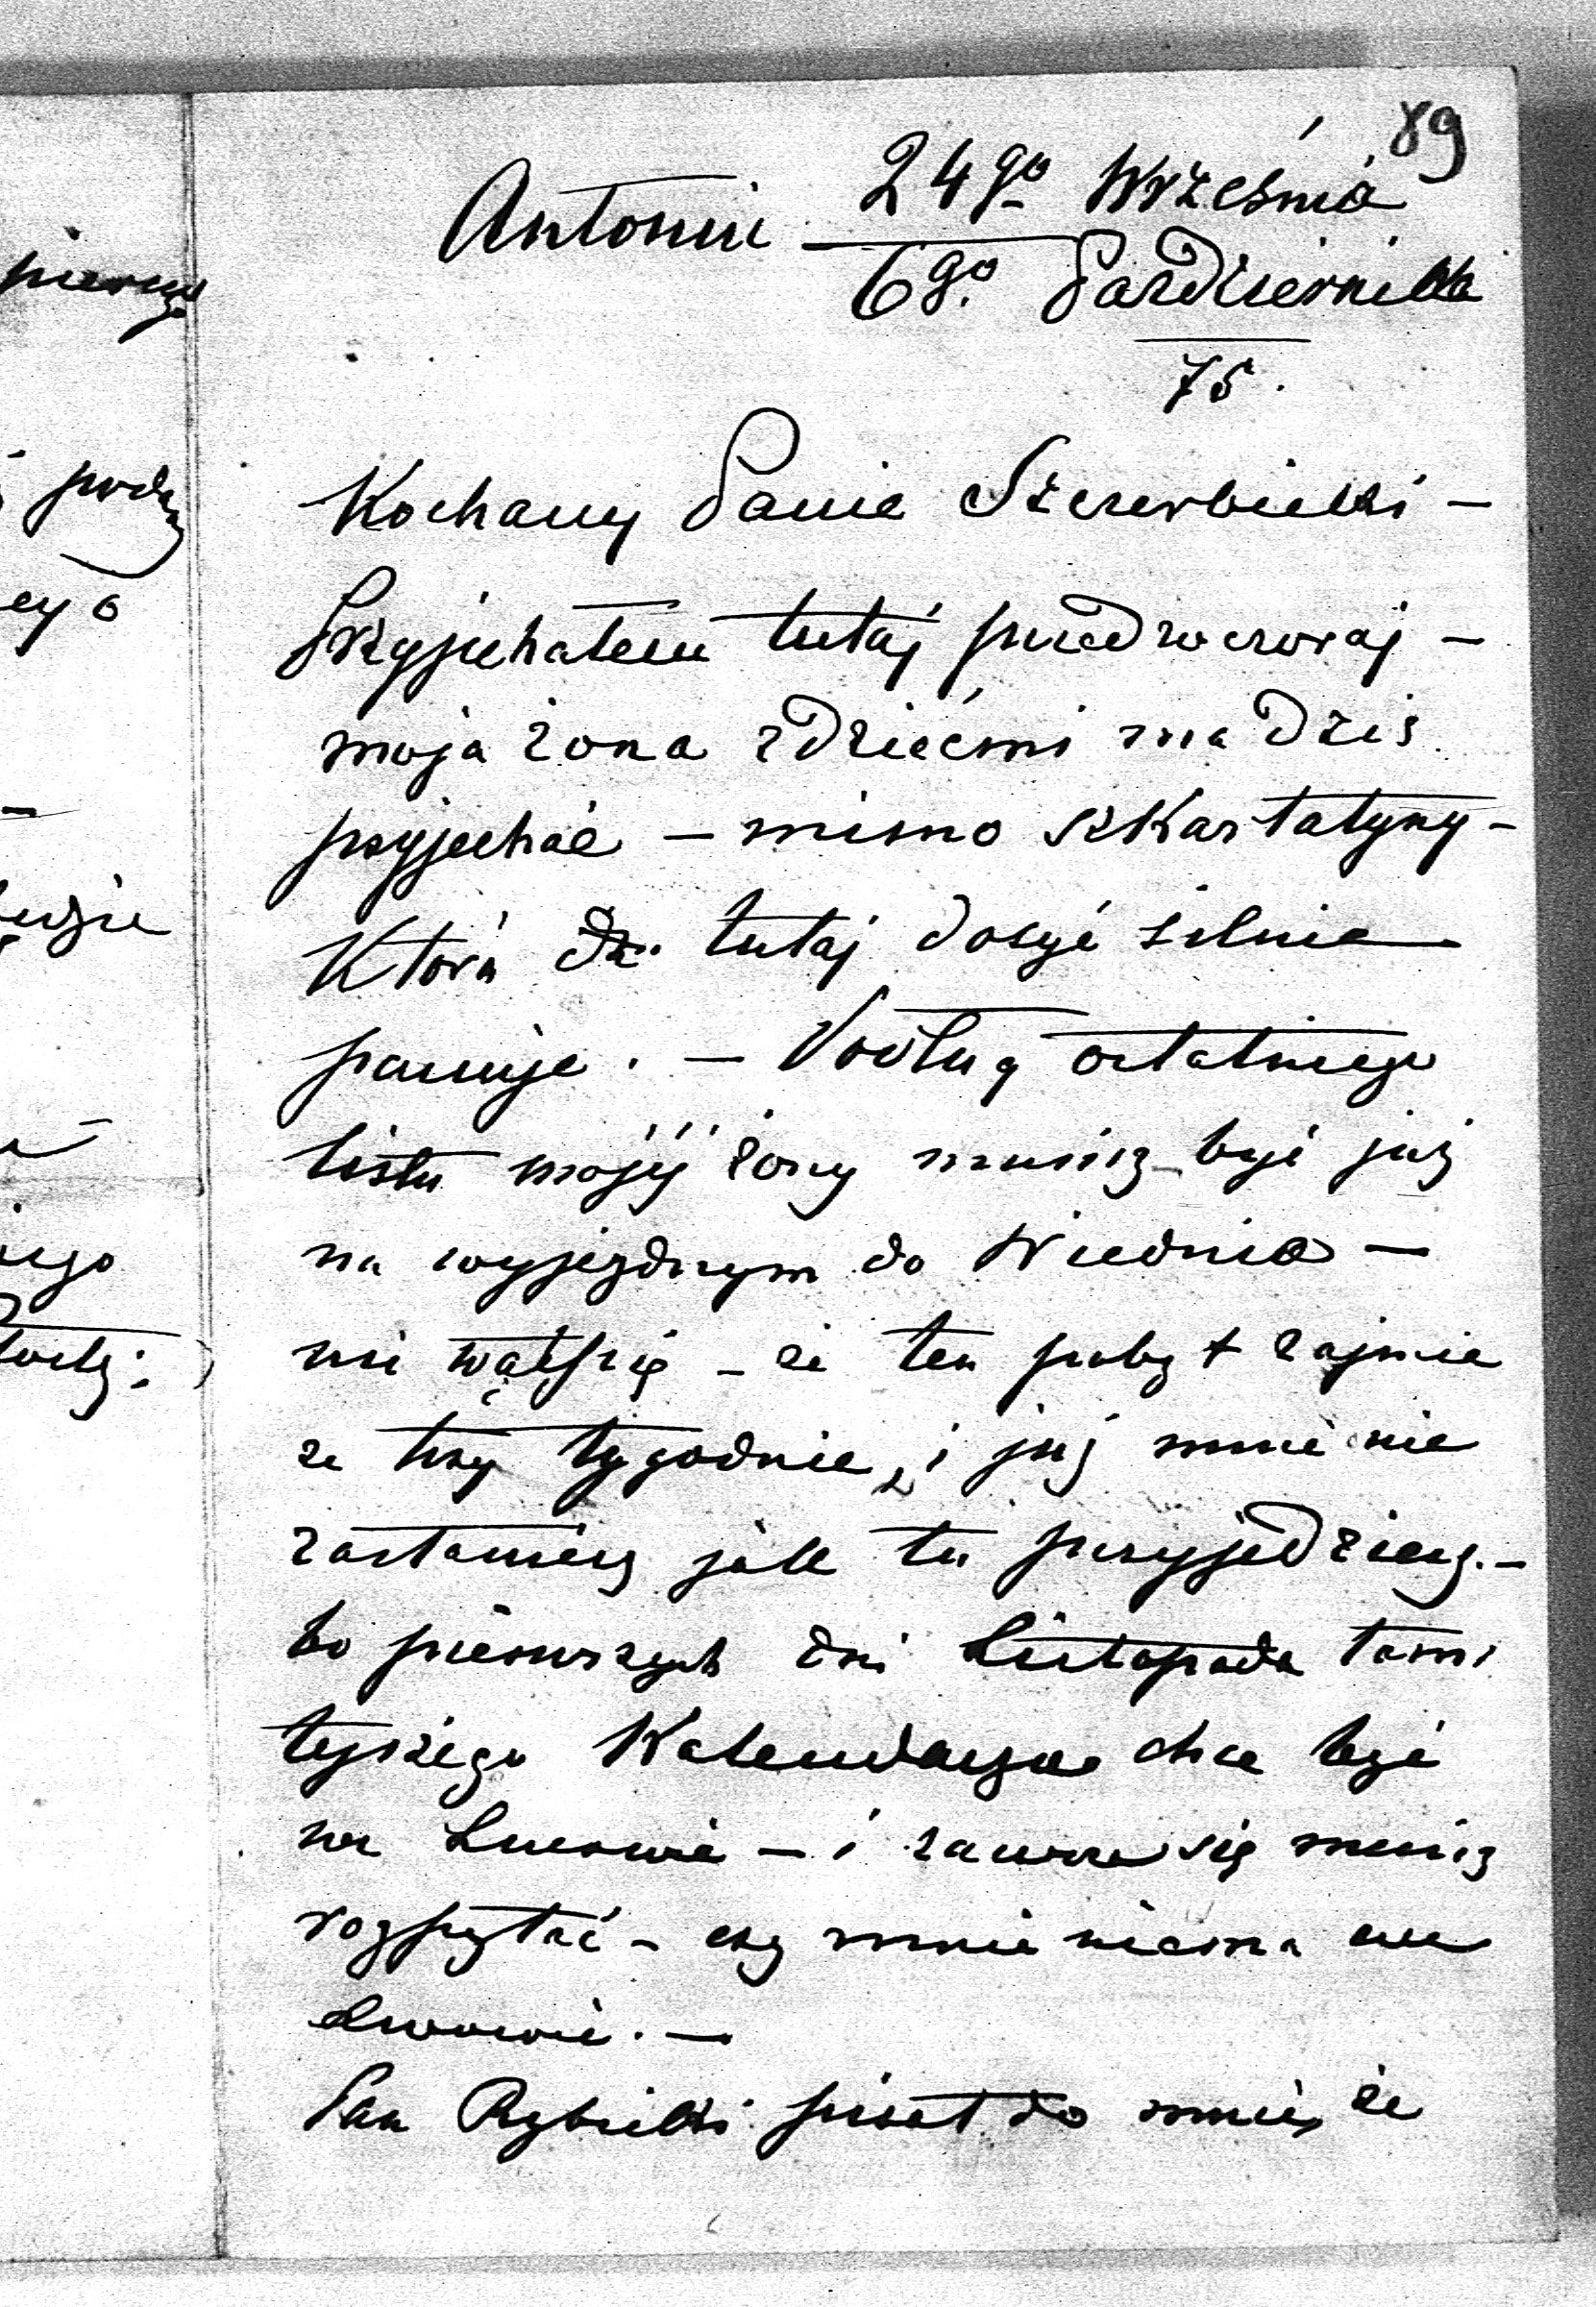 89
Antonin 24go Września
6go Października
75.
Kochany Panie Szczerbicki –
Przyjechałem tutaj przedwczoraj –
moja żona z dziećmi ma dziś
przyjechać – mimo szkarlatyny –
która tutaj dosyć silnie
panuje. – Według ostatniego
listu mojéj żony musisz być już
na wyjezdnym do Wiednia –
nie wątpię – że ten pobyt zajmie
ze trzy tygodnie, i już mnie nie
zastaniesz jak tu przyjedziesz. –
bo pierwszych dni Listopada tam
tejszego Kalendarza chce być
we Lwowie – i zawsze się musisz
rozpytać – czy mnie niema we
Lwowie. –
Pan Rybicki pisał do mnie, że